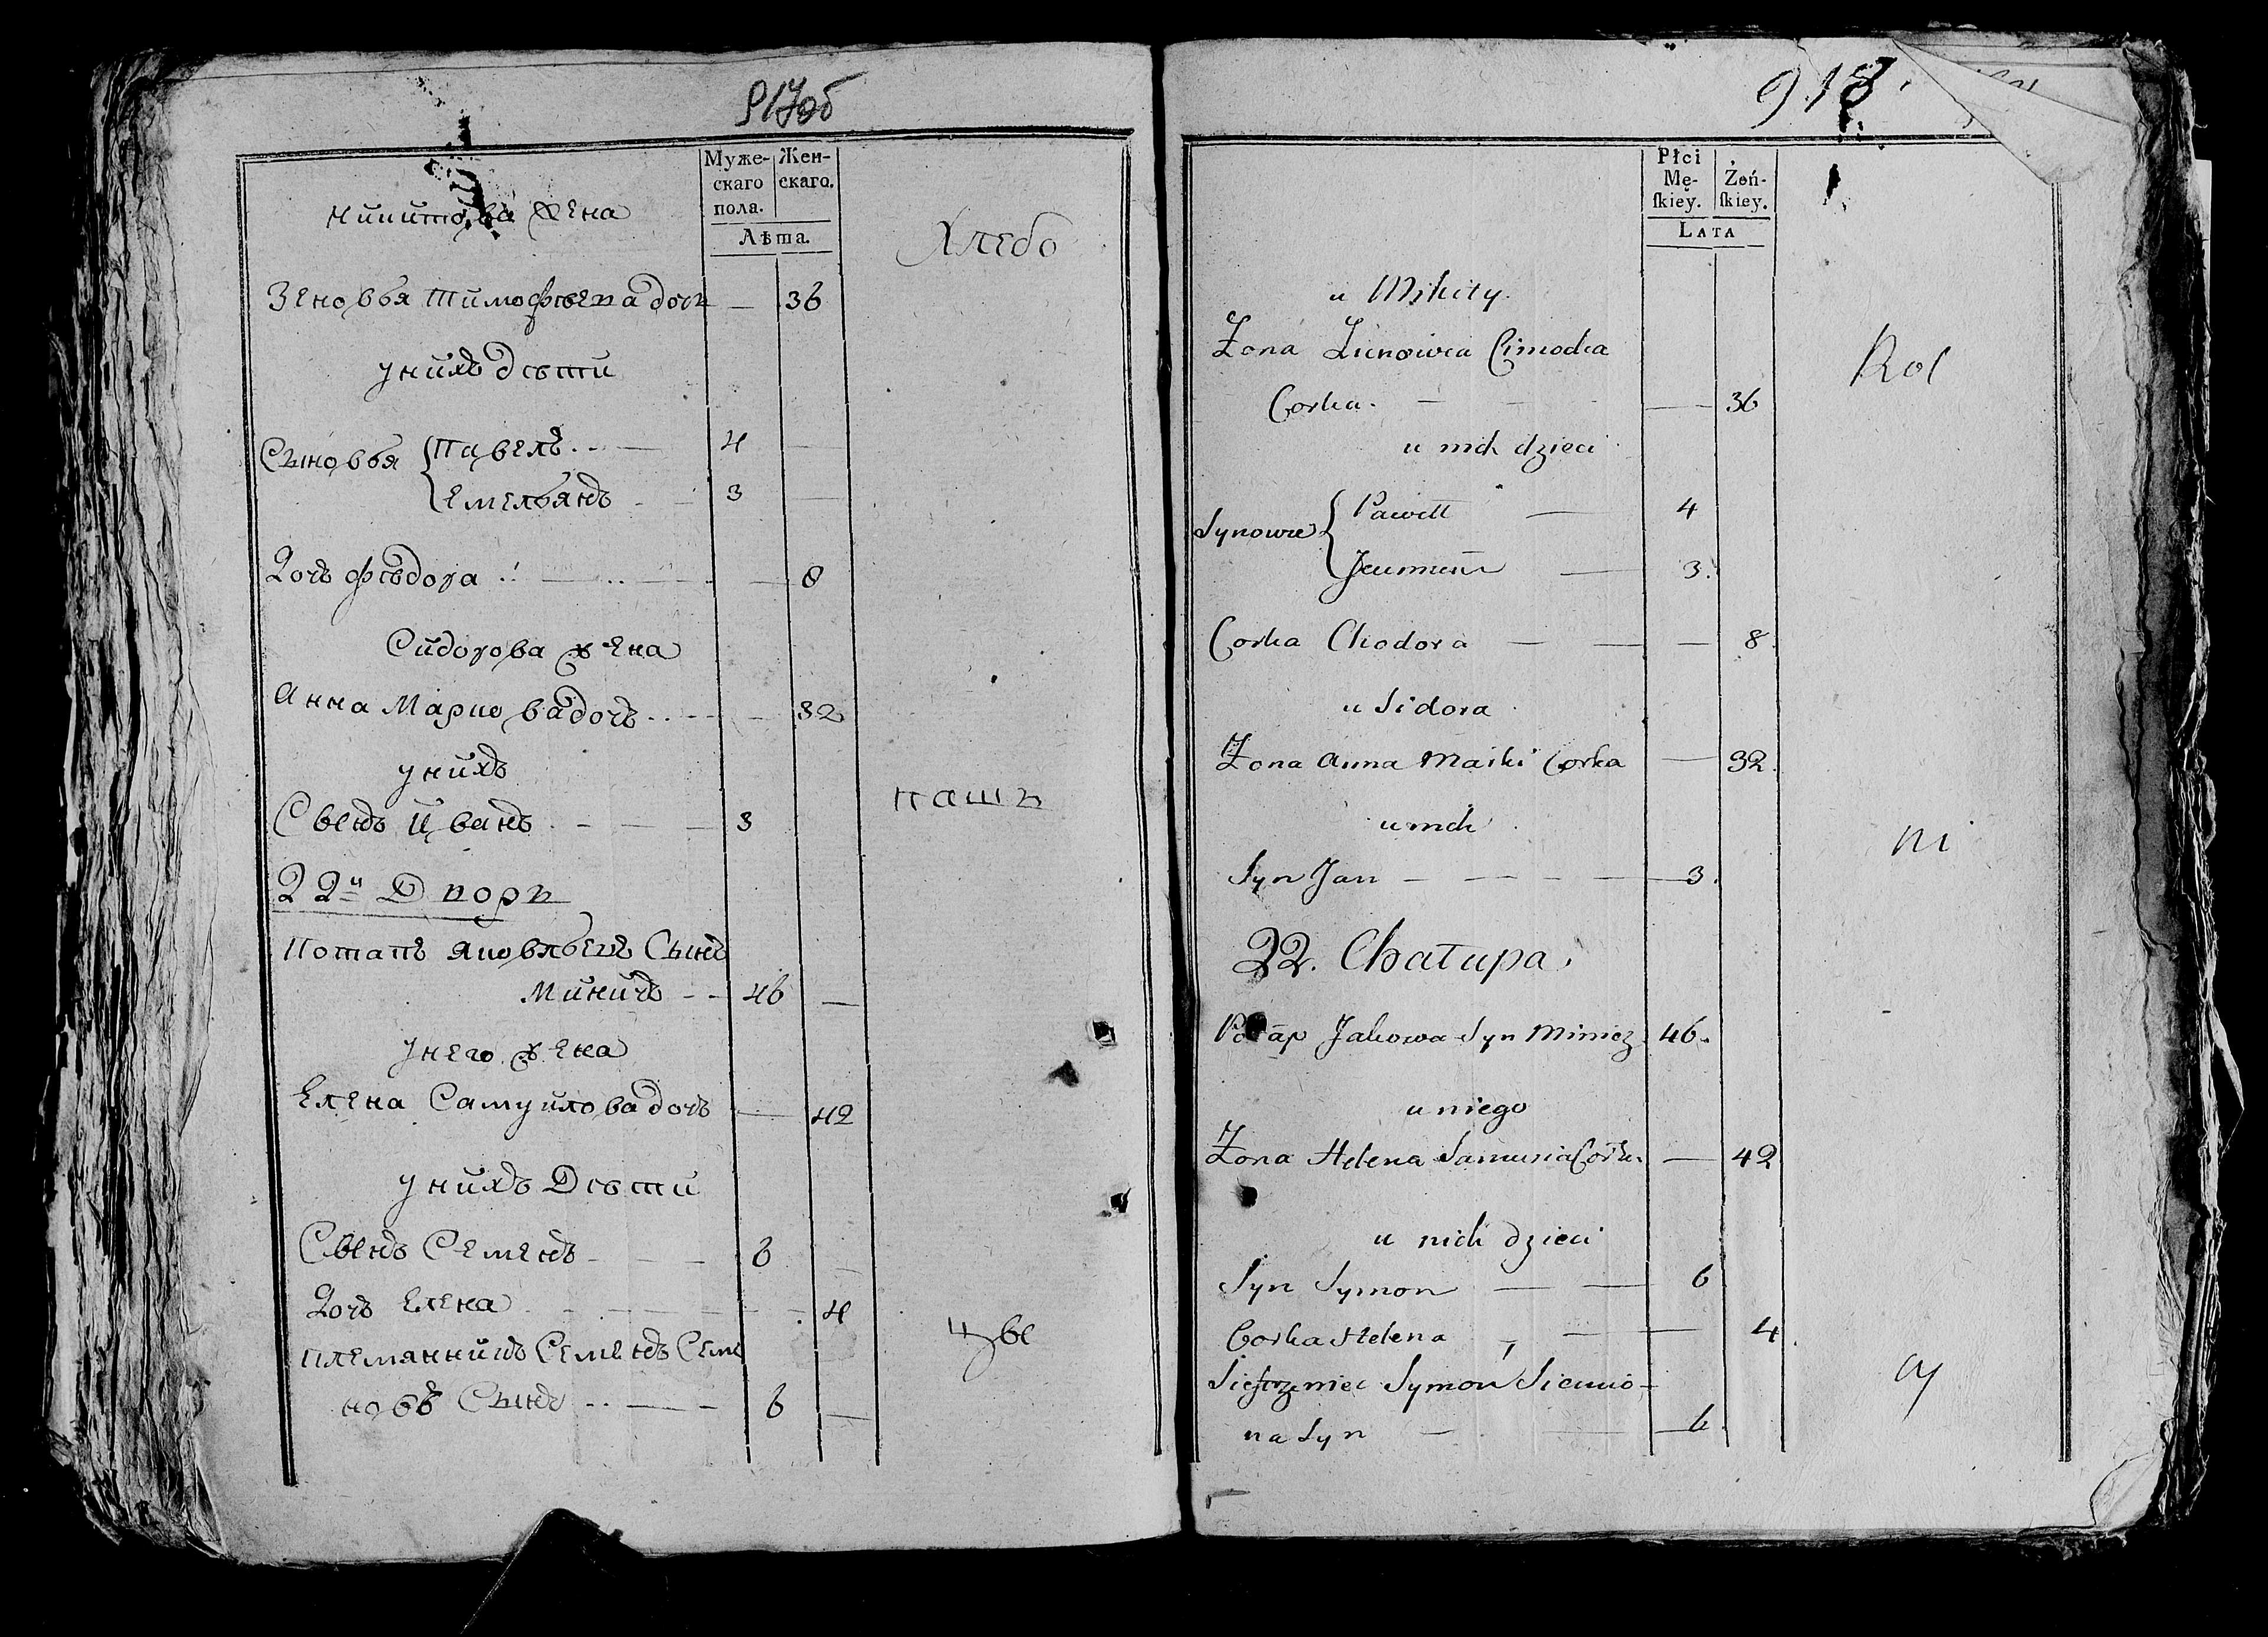 917об
Муже-
скаго
пола.
Жен-
скаго.
Лѣта.
Никитова жена
Хлебо
Зеновья Тимофѣева дочь — 36
у нихъ Дѣти
Сыновья
Павелъ 4 —
Емельянъ 3 —
Дочь Ѳѣдора — 8
Сидорова жена
Анна Маркова дочь — 32
у нихъ
паш
Сынъ Иванъ 3
22й Дворъ
Потапъ Яковлевъ Сынъ
Миничъ 46 —
у него жена
Елена Самуйлова дочь — 42
у нихъ Дѣти
Сынъ Семенъ 6
Дочь Елена 4
цы
племянникъ Семенъ Семе
новъ Сынъ 6 —
918
Płci
Mę-
skiey.
Żeń-
skiey.
LATA
u Mikity
Żona Zienowia Cimocha
Rol
Corka — 36
u nich dzieci
Synowie
Pawełł 4
3
Corka Chodora — 8
u Sidora
Żona Anna Marki Corka — 32
u nich
ni
Syn Jan 3
22. Chałupa
Potap Jakowa Syn Minicz 46
u niego
Żona Helena Samusia Corka — 42
u nich dzieci
Syn Symon 6
Corka Helena — 4
cy
Siestrzeniec Symon Siemio-
na Syn — 6